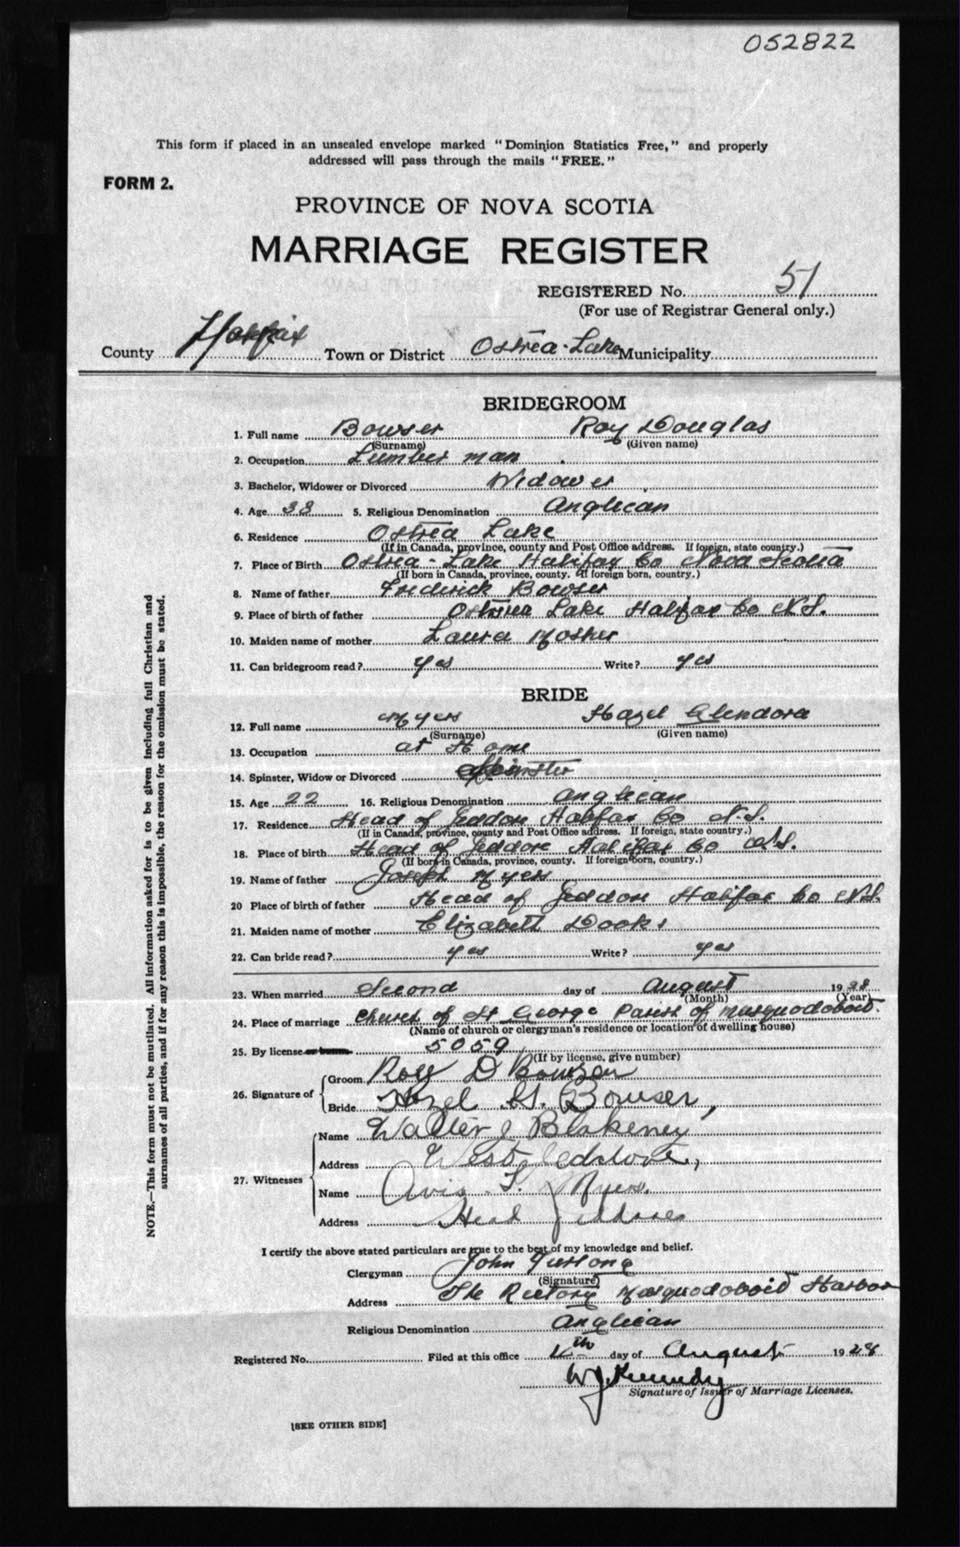 052822
This form if placed in an unsealed envelope marked "Dominion Statistics Free," and properly
addressed will pass through the mails "FREE."
FORM 2.
PROVINCE OF NOVA SCOTIA
MARRIAGE REGISTER
REGISTERED No. 51
(For use of Registrar General only.)
County Halifax Town or District Ostrea-Lake Municipality
BRIDEGROOM
1. Full name Bowser Roy Douglas
(Surname) (Given name)
2. Occupation Lumber man
3. Bachelor, Widower or Divorced Widower
4. Age 38 5. Religious Denomination Anglican
6. Residence Ostrea Lake
(If in Canada, province, county and Post Office address. If foreign, state country.)
7. Place of Birth Ostrea-Lake Halifax Co Nova Scotia
(If born in Canada, province, county. If foreign born, country.)
8. Name of father Frederick Bowser
9. Place of birth of father Ostrea Lake Halifax Co N.S.
10. Maiden name of mother Laura Mosher
11. Can bridegroom read? yes Write? yes
BRIDE
12. Full name Myers Hazel Glendora
(Surname) (Given name)
13. Occupation at Home
14. Spinster, Widow or Divorced Spinster
15. Age 22 16. Religious Denomination Anglican
17. Residence Head of Jeddore Halifax Co N.S.
(If in Canada, province, county and Post Office address. If foreign, state country.)
18. Place of birth Head of Jeddore Halifax Co N.S.
(If born in Canada, province, county. If foreign born, country.)
19. Name of father Joseph Myers
20 Place of birth of father Head of Jeddore Halifax Co N.S.
21. Maiden name of mother Elizabeth Dooks
22. Can bride read? yes Write? yes
23. When married Second day of August 1928
(Month) (Year)
24. Place of marriage Church of St George Parish of Musquodoboit.
(Name of church or clergyman's residence or location of dwelling house)
25. By license 5059
(If by license, give number)
26. Signature of Groom Roy D Bowser
Bride Hazel G. Bowser,
27. Witnesses Name Walter J Blakeney
Address West Jeddore,
Name Avis F. Myers.
Address Head Jeddore
I certify the above stated particulars are true to the best of my knowledge and belief.
Clergyman John Furlong
(Signature)
Address The Rectory Musquodoboit Harbor
Religious Denomination Anglican
Registered No. Filed at this office day of August 1928
W.J. Kennedy
Signature of Issuer of Marriage Licenses.
[SEE OTHER SIDE]
NOTE.—This form must not be mutilated. All information asked for is to be given including full Christian and
surnames of all parties, and if for any reason this is impossible, the reason for the omission must be stated.